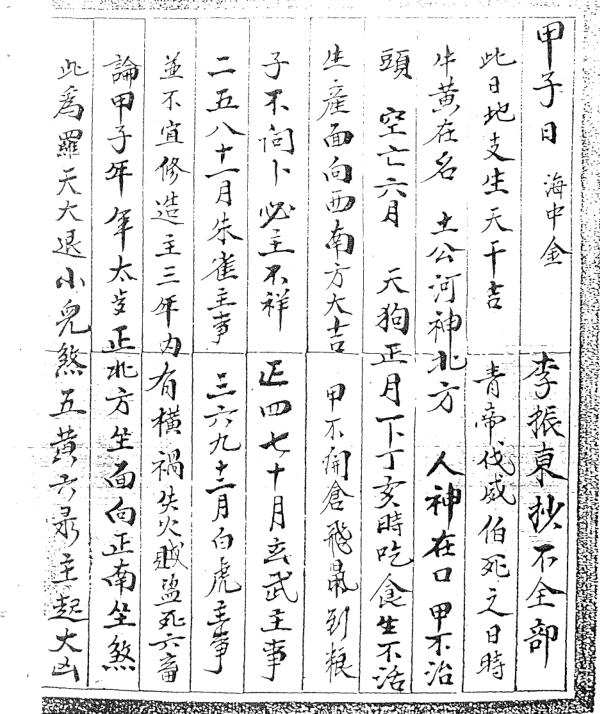 甲子日 海中金 李振東抄不全部
此日地支生天干吉 青帝伐威伯死之日時
牛黃在名 土公河神北方 人神在口 甲不治
頭 空亡六月 天狗正月下丁亥時吃食生不活
生產面向西南方大吉 甲不開倉飛鼠到粮
子不问卜必主不祥 正四七十月玄武主事
二五八十一月朱雀主事 三六九十二月白虎主事
並不宜修造主三年內有橫禍失火賊盜死六畜
論甲子年 年太歲正北方坐面向正南坐煞
此為羅天大退小兒煞五黃六 主起大凶